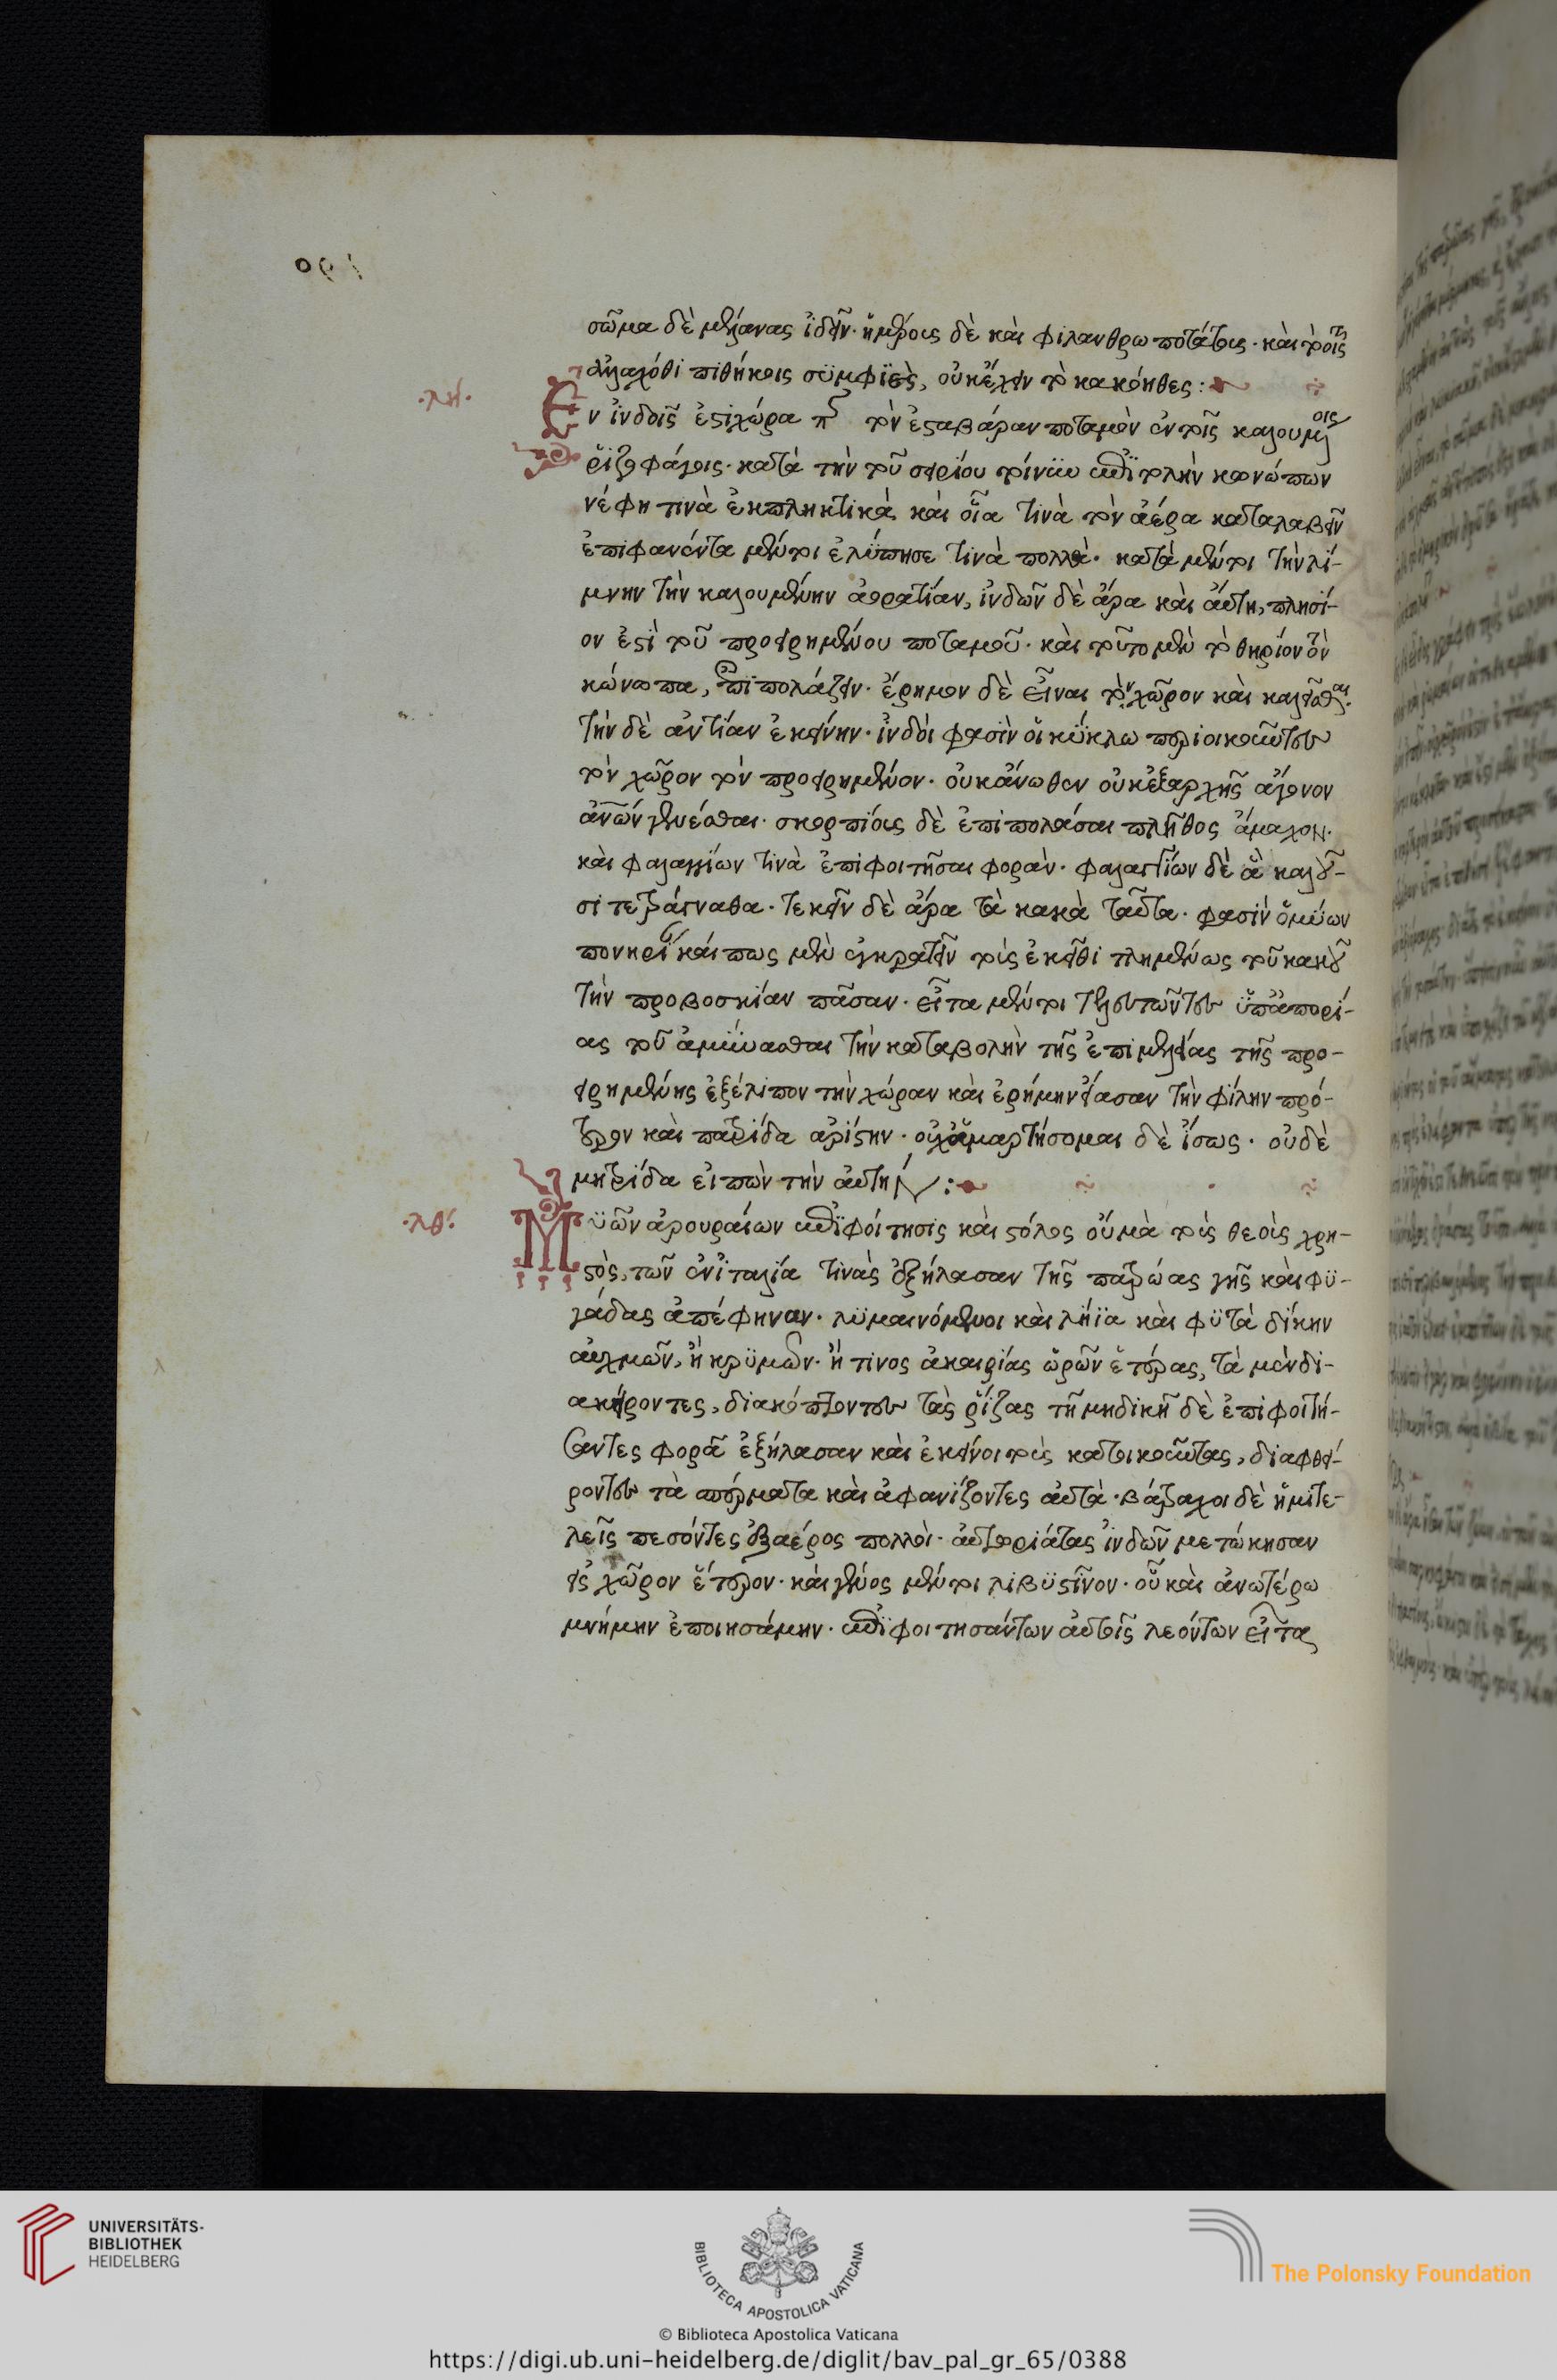 σῶμα δὲ μέλανας ἰδεῖν· ἡμέροις δὲ καὶ φιλανθρωποτάτοις· καὶ τὸ τοῖς
ἀλλαχόθι πιθήκοις συμφυὲς, οὐκ ἔχειν τὸ κακόηθες:
·λη·
Ἐν ἰνδοῖς ἐστὶ χώρα π τὸν ἐσταβάραν ποταμὸν ἐν τοῖς καλουμένοις
ῥιζοφάγοις· κατὰ τὴν τοῦ σειρίου ἐπιτολὴν κωνώπων
νέφη τινὰ ἐκπληκτικὰ καὶ οἷα τινὰ τὸν ἀέρα καταλαβεῖν
ἐπιφανέντα μέντοι ἐλύπησε τινὰ πολλά· κατὰ μέντοι τὴν λί-
μνην τὴν καλουμένην ἀορατίαν, ἰνδῶν δὲ ἄρα καὶ αὕτη, πλησί-
ον ἐστὶ τοῦ προειρημένου ποταμοῦ· καὶ τοῦτο μὲν τὸ θηρίον τὸν
κώνωπα, ἐπιπολάζειν· ἔρημον δὲ εἶναι τὸν χῶρον καὶ καλεῖσθαι·
τὴν δὲ αἰτίαν ἐκείνην· ἰνδοὶ φασὶν οἱ κύκλω περιοικοῦντες
τὸν χῶρον τὸν προειρημένον· οὐκ ἄνωθεν οὐκ ἐξαρχῆς ἄγονον
ἀνῶν γενέσθαι· σκορπίοις δὲ ἐπιπολάσαι πλῆθος ἄμαχον·
καὶ φαλαγγίων τινὰ ἐπιφοιτῆσαι φορὰν· φαλαγγίων δὲ ἃ καλοῦ-
σι τετράγναθα· τεκεῖν δὲ ἄρα τὰ κακὰ ταῦτα· φασὶν
πονηρὶ καί πως μὲν ἐγκρατεῖν τοὺς ἐκεῖθι τλημόνως τοῦ κακοῦ
τὴν προβοσκίαν πᾶσαν· εἶτα μέντοι τελευτῶντες ὑπ' ἀπορί-
ας τοῦ ἀμύνασθαι τὴν καταβολὴν τῆς ἐπιμελείας τῆς προ-
ειρημένης ἐξέλιπον τὴν χώραν καὶ ἐρήμην εἴασαν τὴν φίλην πρό-
τερον καὶ πατρίδα ἀρίστην· οὐχ ἁμαρτήσομαι δὲ ἴσως· οὐδὲ
μητρίδα εἰπὼν τὴν αὐτὴν:
·λθ·
Μυῶν ἀρουραίων ἐπιφοίτησις καὶ στόλος οὐ μὰ τοὺς θεοὺς χρη-
στὸς, τῶν ἐν ἰταλία τινὰς ἐξήλασαν τῆς πατρώας γῆς καὶ φυ-
γάδας ἀπέφηναν· λυμαινόμενοι καὶ λήϊα καὶ φυτὰ δίκην
αὐχμῶν, ἢ κρυμῶν· ἤ τινος ἀκαιρίας ὡρῶν ἑτέρας, τὰ μὲν δι-
ακείροντες, διακόπτοντες τὰς ῥίζας τῆ μηδικῆ δὲ ἐπιφοιτή-
σαντες φορᾶ ἐξήλασαν καὶ ἐκεῖνοι τοὺς κατοικοῦντας, διαφθεί-
ροντες τὰ σπέρματα καὶ ἀφανίζοντες αὐτὰ· βάτραχοι δὲ ἡμιτε-
λεῖς πεσόντες ἐξ ἀέρος πολλοὶ· αὐταριάτας ἰνδῶν μετώκησαν
εἰς χῶρον ἕτερον· καὶ γένος μέντοι λιβυστῖνον· οὗ καὶ ἀνωτέρω
μνήμην ἐποιησάμην· ἐπιφοιτησάντων αὐτοῖς λεόντων εἶτα
UNIVERSITÄTS-
BIBLIOTHEK
HEIDELBERG
BIBLIOTECA APOSTOLICA VATICANA
The Polonsky Foundation
© Biblioteca Apostolica Vaticana
https://digi.ub.uni-heidelberg.de/diglit/bav_pal_gr_65/0388